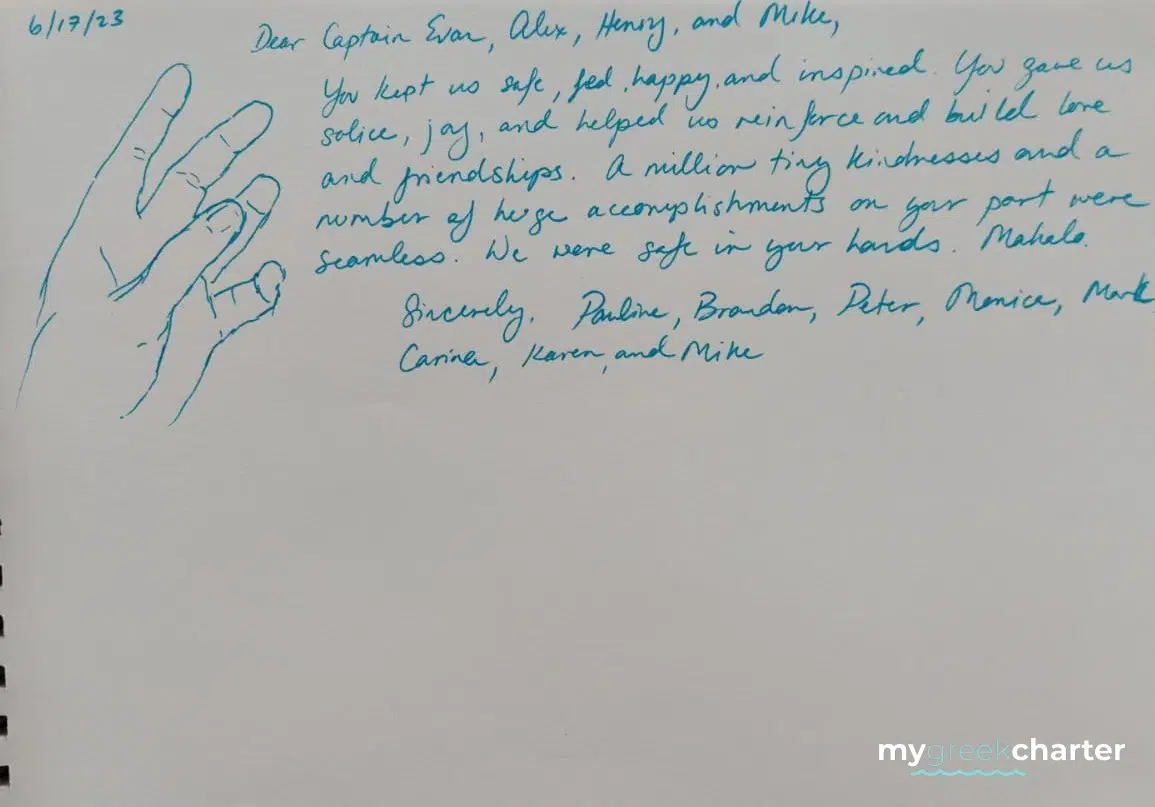 6/17/23
Dear Captain Evan, Alex, Henry, and Mike,
You kept us safe, fed, happy, and inspired. You gave us
solice, joy, and helped us reinforce and build love
and friendships. A million tiny kindnesses and a
number of huge accomplishments on your part were
seamless. We were safe in your hands. Mahalo.
Sincerely, Pauline, Brandon, Peter, Monica, Mark,
Carina, Karen, and Mike
mygreekcharter